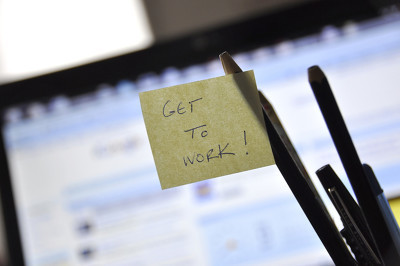 GET
TO
WORK!